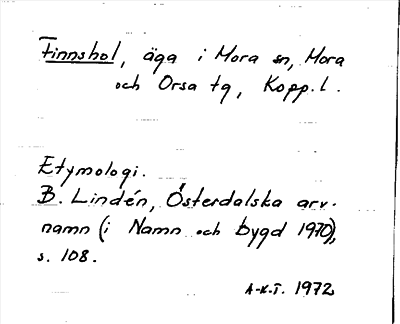 Finnshol, äga i Mora sn, Mora
och Orsa tg, Kopp.l.
Etymologi.
B. Lindén, Österdalska arv-
namn (i Namn och bygd 1970),
s. 108.
A-K.T. 1972